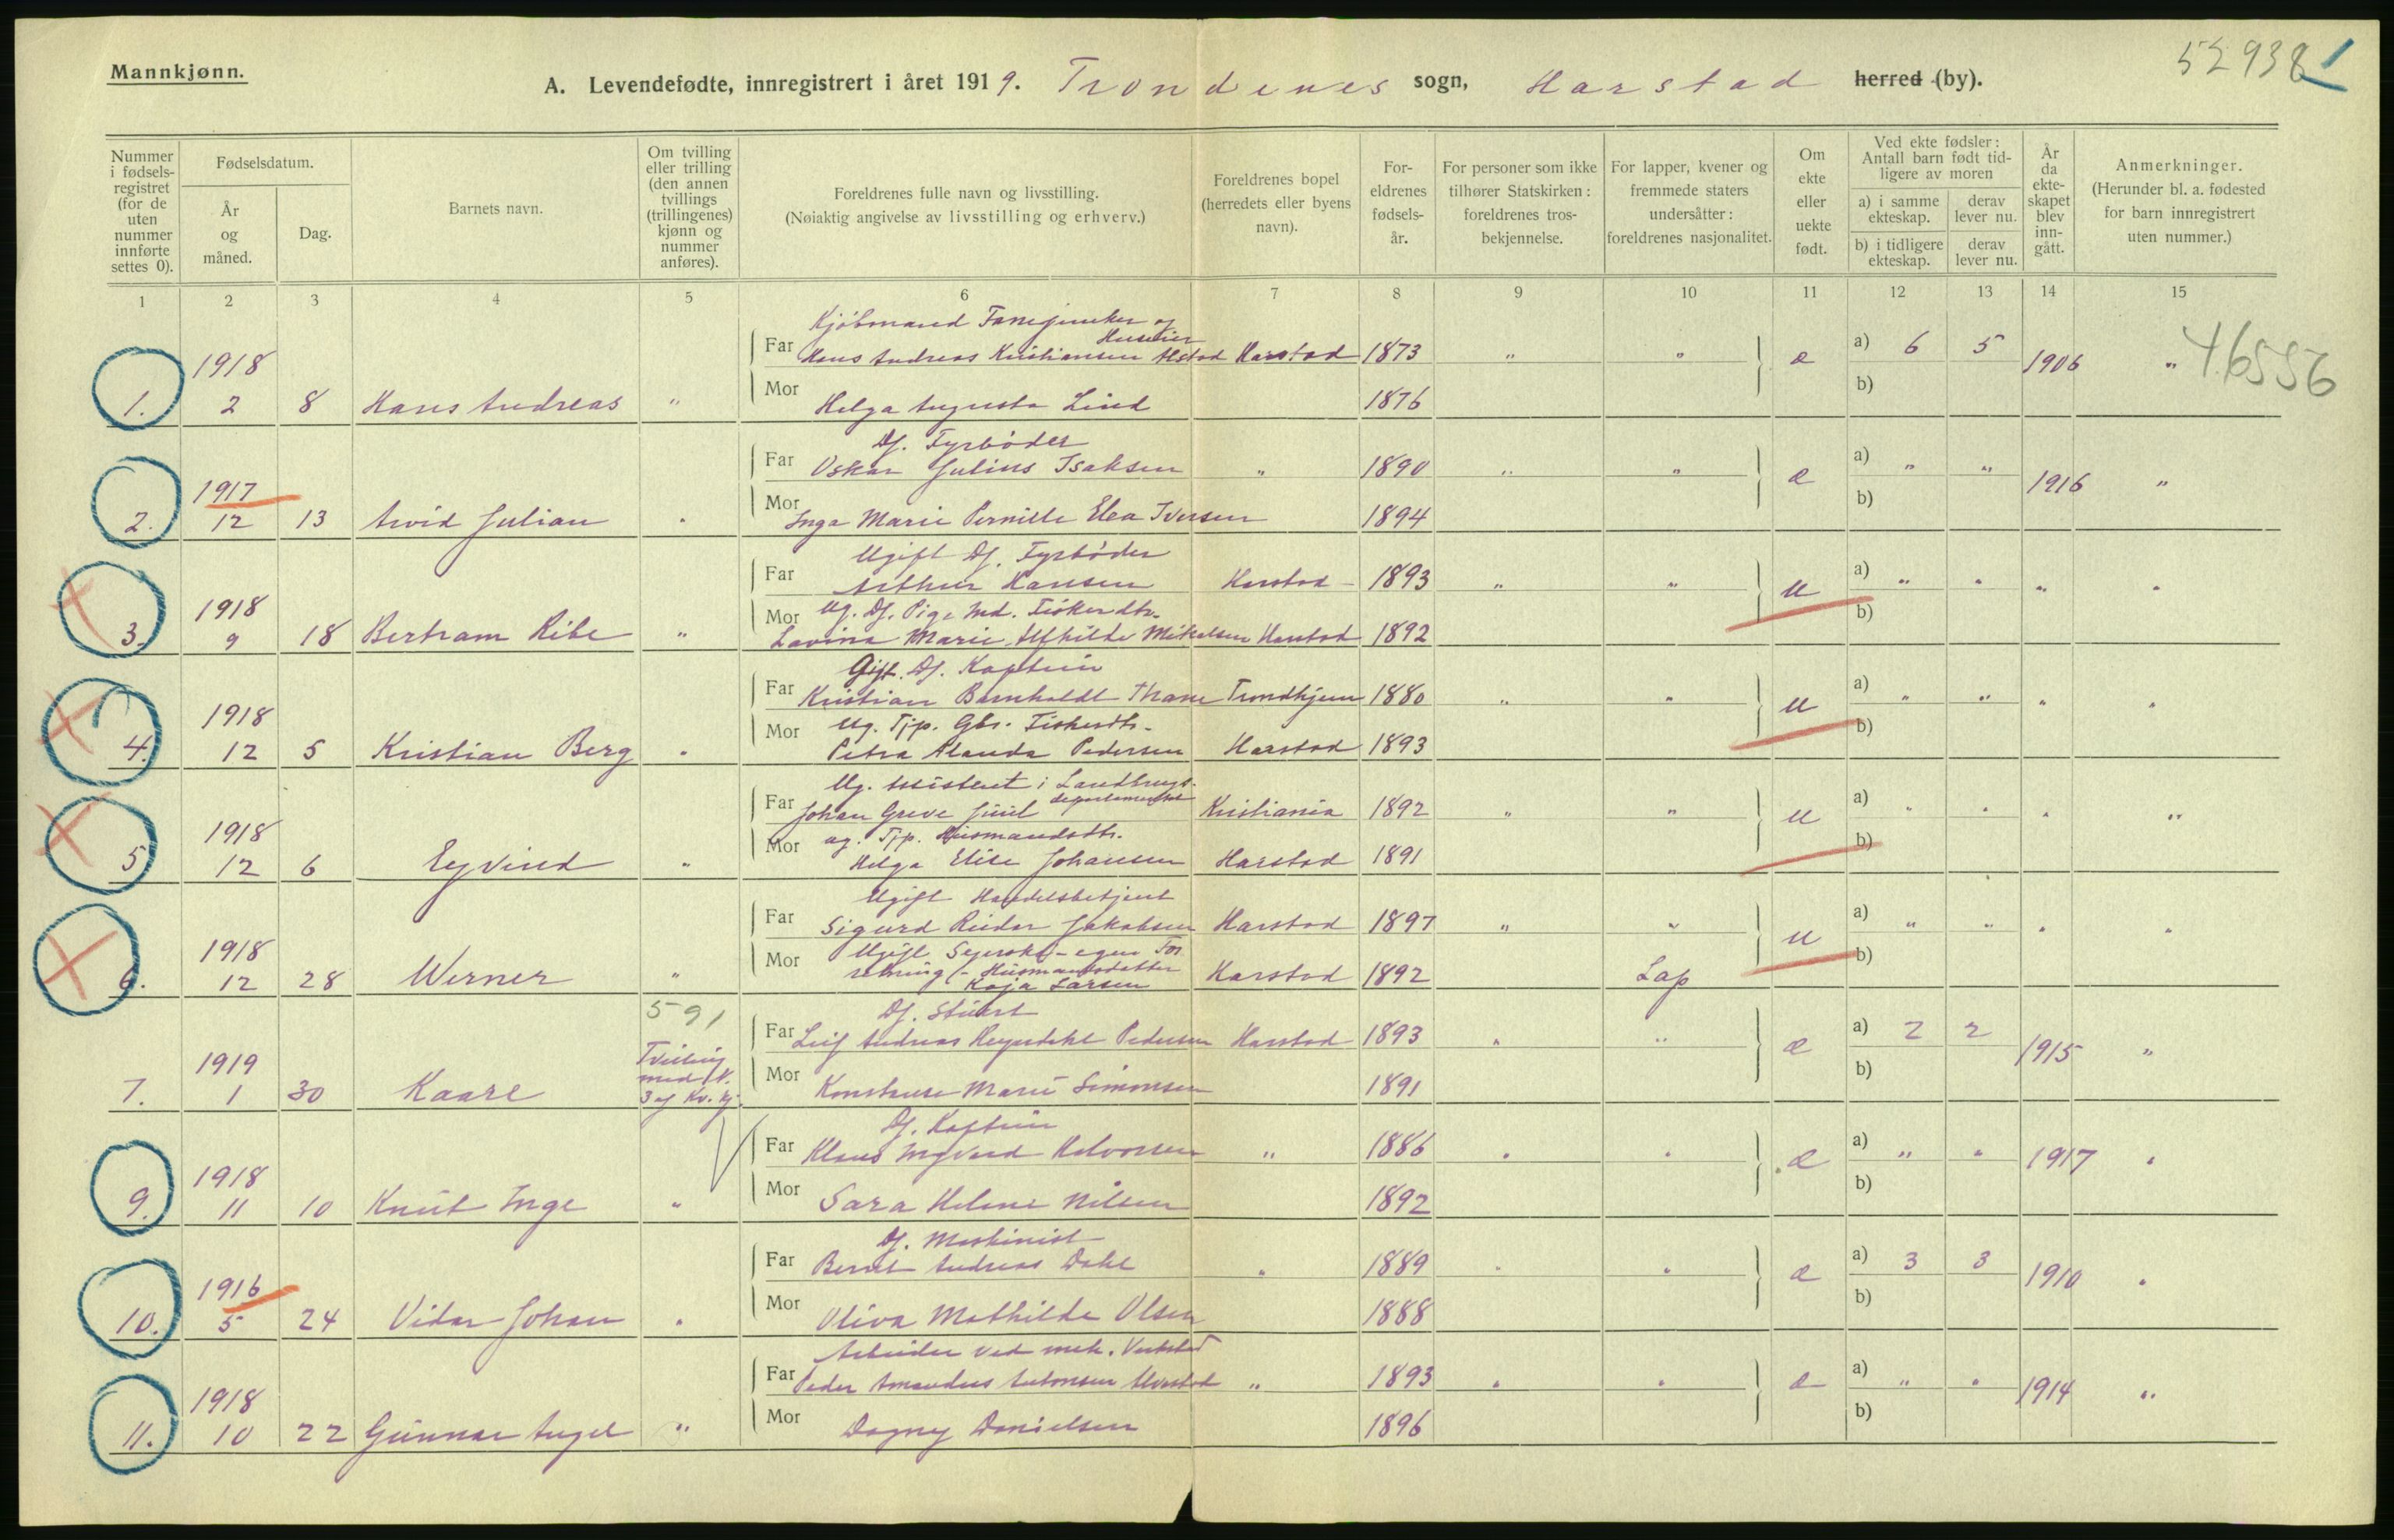 Mannkjønn.
52938
A. Levendefødte, innregistrert i året 1919. Trondenes sogn, Harstad herred (by).
Nummer i fødsels-registret (for de uten nummer innførte settes 0).
Fødselsdatum.
År og måned.
Dag.
Barnets navn.
Om tvilling eller trilling (den annen tvillings (trillingenes) kjønn og nummer anføres).
Foreldrenes fulle navn og livsstilling.
(Nøiaktig angivelse av livsstilling og erhverv.)
Foreldrenes bopel (herredets eller byens navn).
For-eldrenes fødsels-år.
For personer som ikke tilhører Statskirken: foreldrenes tros-bekjennelse.
For lapper, kvener og fremmede staters undersåtter: foreldrenes nasjonalitet.
Om ekte eller uekte født.
Ved ekte fødsler: Antall barn født tid-ligere av moren
a) i samme ekteskap.
derav lever nu.
b) i tidligere ekteskap.
derav lever nu.
År da ekte-skapet blev inn-gått.
Anmerkninger.
(Herunder bl. a. fødested for barn innregistrert uten nummer.)
1 2 3 4 5 6 7 8 9 10 11 12 13 14 15
Kjøbmand og
Huseier
Far Hans Andreas Kristiansen Harstad 1873 " " } e a) 6 5 1906 " 46556
1918
1. 2 8 Hans Andreas " Mor Helga Augusta Lind 1876 b)
Df. Fyrbøder
Far Oskar Julius Isaksen " 1890 " " } e a) " " 1916 "
1917
2. 12 13 Arvid Julian " Mor Inga Marie Pernille Elea Iversen 1894 b)
Ugift Df. Fyrbøder
Far Arthur Hansen Harstad 1893 " " } u a) " " " "
1918 Mor Ug. Df. Pige Ind. Fiskerdtr. b)
3. 9 18 Bertram Ribe " Lovina Marie Alfhilde Mikalsen Harstad 1892
Gift. Df. Kaptein
Far Kristian Barnholdt Thane Trondhjem 1880 " " } u a) " " " "
1918 Mor Ug. Tjp. Gbr. Fiskerdtr. b)
4. 12 5 Kristian Berg " Petra Pedersen Harstad 1893
Ug. Assistent i Landbrugs-
departementet
Far Johan Greve Juul Kristiania 1892 " " } u a) " " " "
1918 Mor ug. Tjp. Husmandsdtr. b)
5 12 6 Eyvind " Helga Elise Johansen Harstad 1891
Ugift Handelsbetjent
Far Sigurd Reidar Jakobsen Harstad 1897 " " } u a) " " " "
1918 Mor Ugift Syerske - egen For
retning - Husmandsdatter b)
6. 12 28 Werner " Kaja Larsen Harstad 1892 Lap
591
Df. Stuert
Far Leif Andreas Heyerdahl Pedersen Harstad 1893 " " } e a) 2 2 1915 "
1919 Tvilling
med N.
7. 1 30 Kaare 3 af Kv. kj. Mor Konstanse Marie Simonsen 1891 b)
Df. Kaptein
Far Klaus Ingvard Halvorsen " 1886 " " } e a) " " 1917 "
1918
9. 11 10 Knut Inge " Mor Sara Helene Nilsen 1892 b)
Df. Maskinist
Far Bernt Andreas Dahl " 1889 " " } e a) 3 3 1910 "
1916
10. 5 24 Vidar Johan " Mor Oliva Mathilde Olsen 1888 b)
Arbeider ved mek. Verksted
Far Peder Amandus Antonsen " 1893 " " } e a) " " 1914 "
1918
11. 10 22 Gunnar Angel " Mor Dagny Danielsen 1896 b)